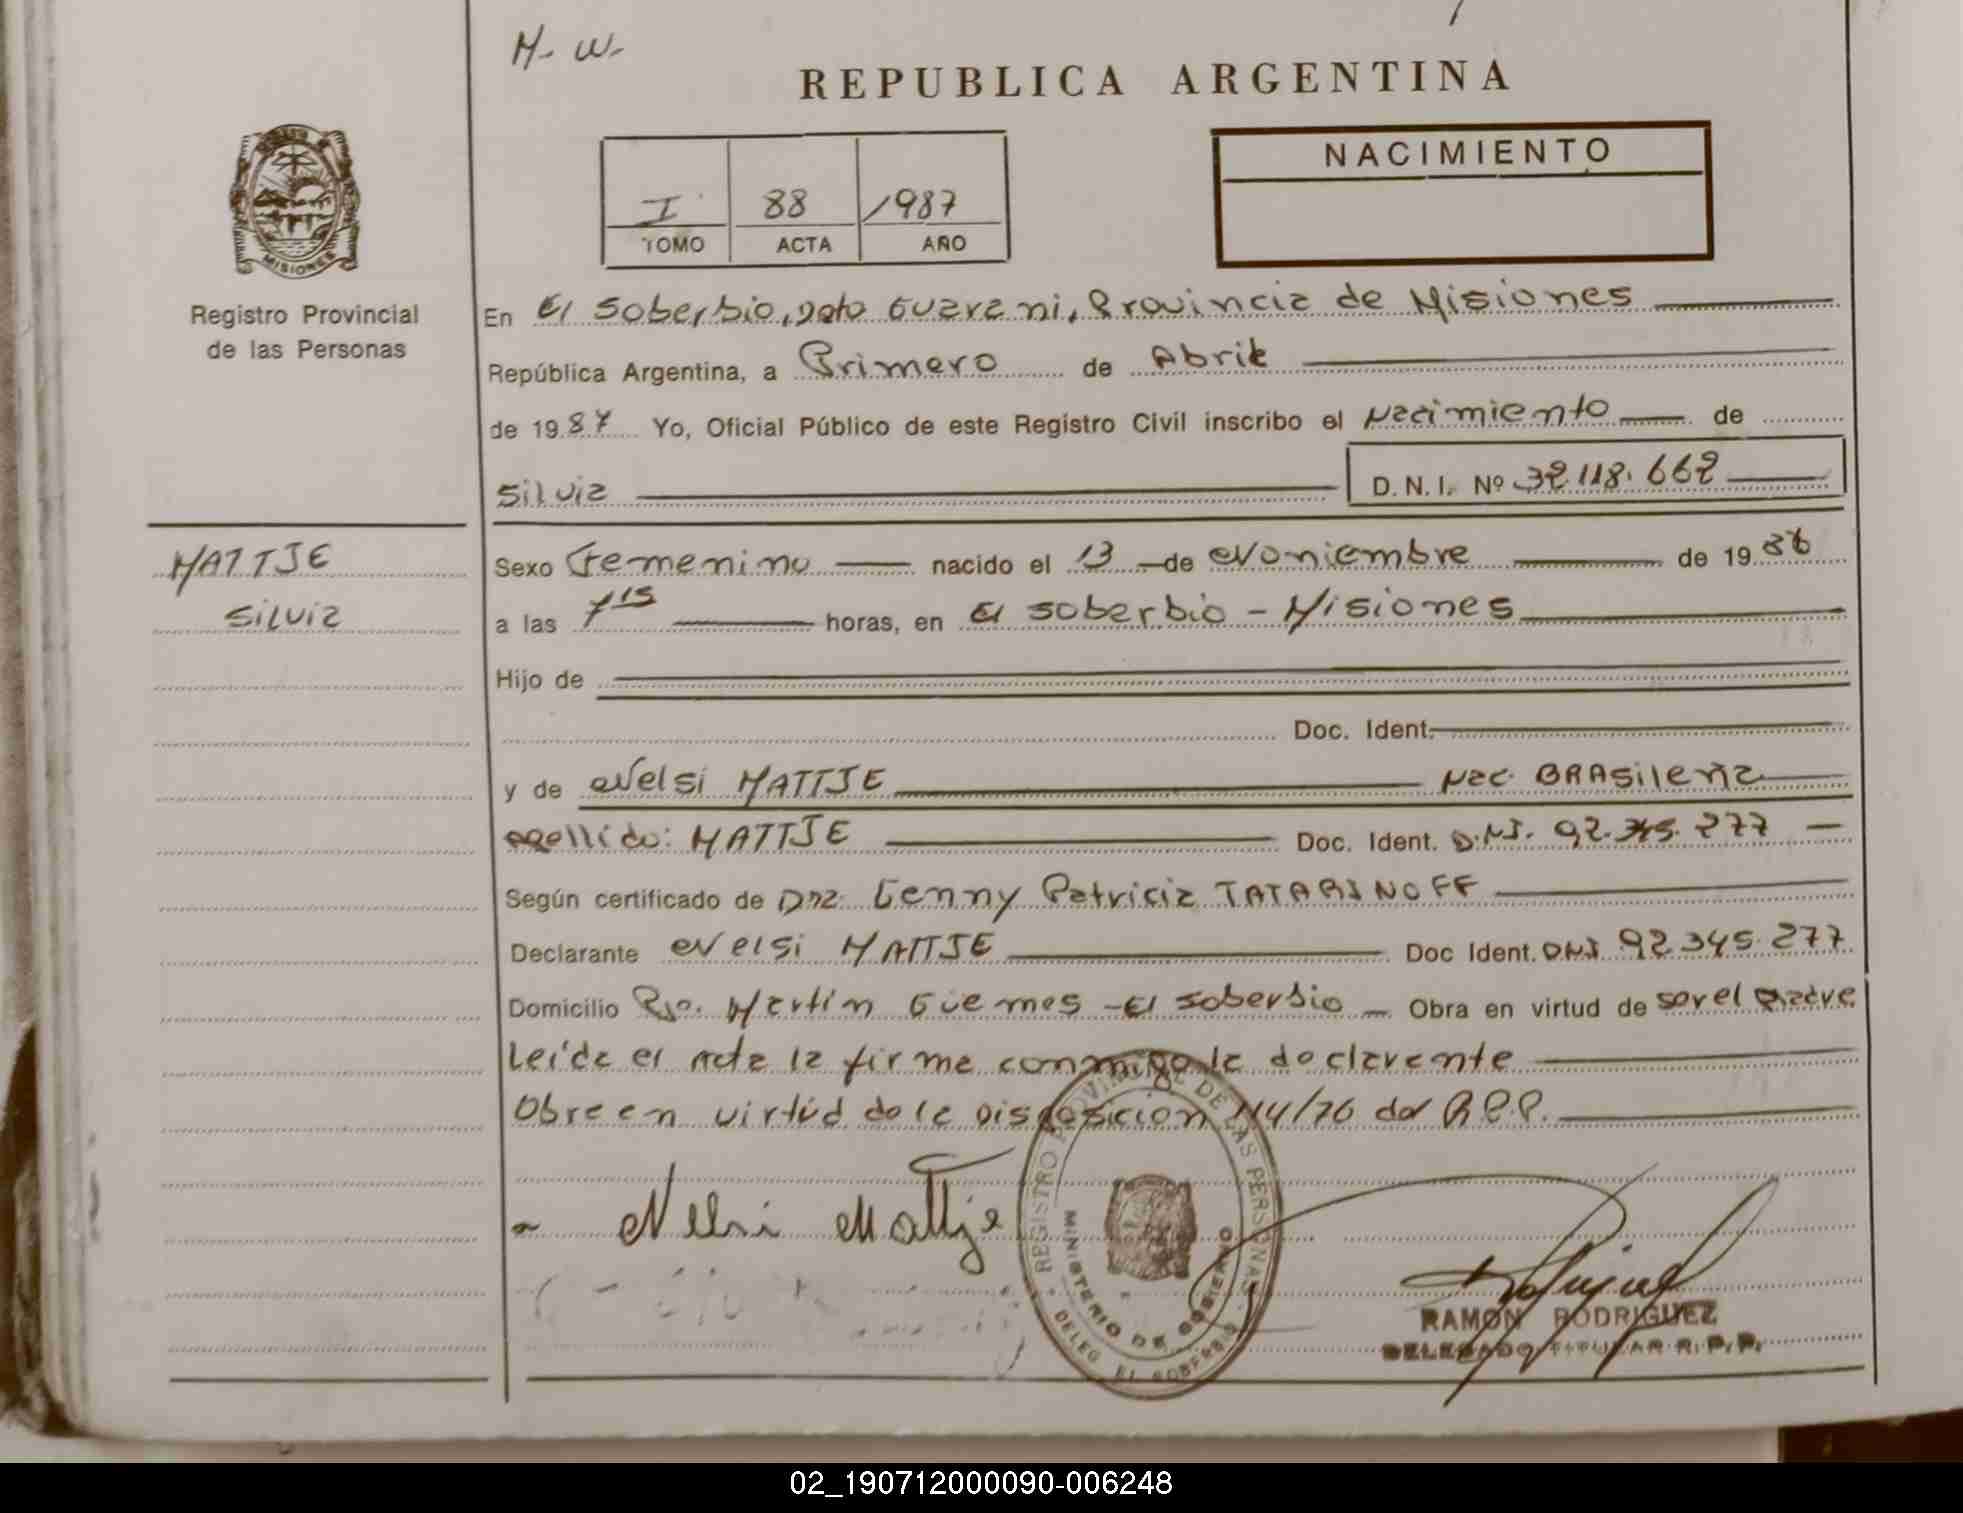 M- W-
REPUBLICA ARGENTINA
NACIMIENTO
I 88 1987
TOMO ACTA AÑO
MISIONES
Registro Provincial
de las Personas
En El Soberbio, Dpto Guarani, Provincia de Misiones
República Argentina, a Primero de Abril
de 1987 Yo, Oficial Público de este Registro Civil inscribo el Nacimiento de
Silvia D.N.I. Nº 32.118.662
MATTJE
Silvia
Sexo Femenino nacido el 13 de Noviembre de 1986
a las 7 15 horas, en El Soberbio - Misiones
Hijo de
Doc. Ident.
y de Nelsi MATTJE Nac. BRAsileña
apellido: MATTJE Doc. Ident. D.NI. 92.345.277
Según certificado de Dra. Genny Patricia TATARINOFF
Declarante Nelsi MATTJE Doc Ident. DNI 92.345.277
Domicilio Martin Güemes - El Soberbio - Obra en virtud de ser el Madre
Leída el Acta la firma conmigo la declarante
Obra en virtúd de la Disposicion 114/76 del R.P.P.
Nelsi Mattje
REGISTRO PROVINCIAL DE LAS PERSONAS
MINISTERIO DE GOBIERNO
DELEG. EL SOBERBIO
RAMON RODRIGUEZ
DELEGADO TITULAR R.P.P.
02_190712000090-006248